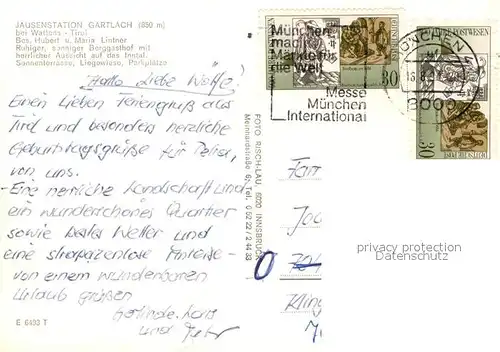 JAUSENSTATION GARTLACH (850 m)
bei Wattens - Tirol
Bes. Hubert u. Maria Lintner
Ruhiger, sonniger Berggasthof mit
herrlicher Aussicht auf das Inntal.
Sonnenterrasse, Liegewiese, Parkplätze
Hallo Liebe Wölfe!
Einen lieben Feriengruß aus
Tirol und besonders herzliche
Geburtstagsgrüße für Petra,
von uns.
- Eine herrliche Landschaft und
ein wunderschönes Quartier
sowie bestes Wetter und
eine strapazenlose Anreise -
von einem wunderbaren
Urlaub grüßen
Gerlinde, Lars
und Peter
E 6493 T
FOTO RISCH-LAU, 6020 INNSBRUCK
München
macht
Märkte für
die Welt
Messe
München
International
MÜNCHEN
8000
30
POSTWESEN
30
Fam
Jo
Kling
privacy protection
Datenschutz